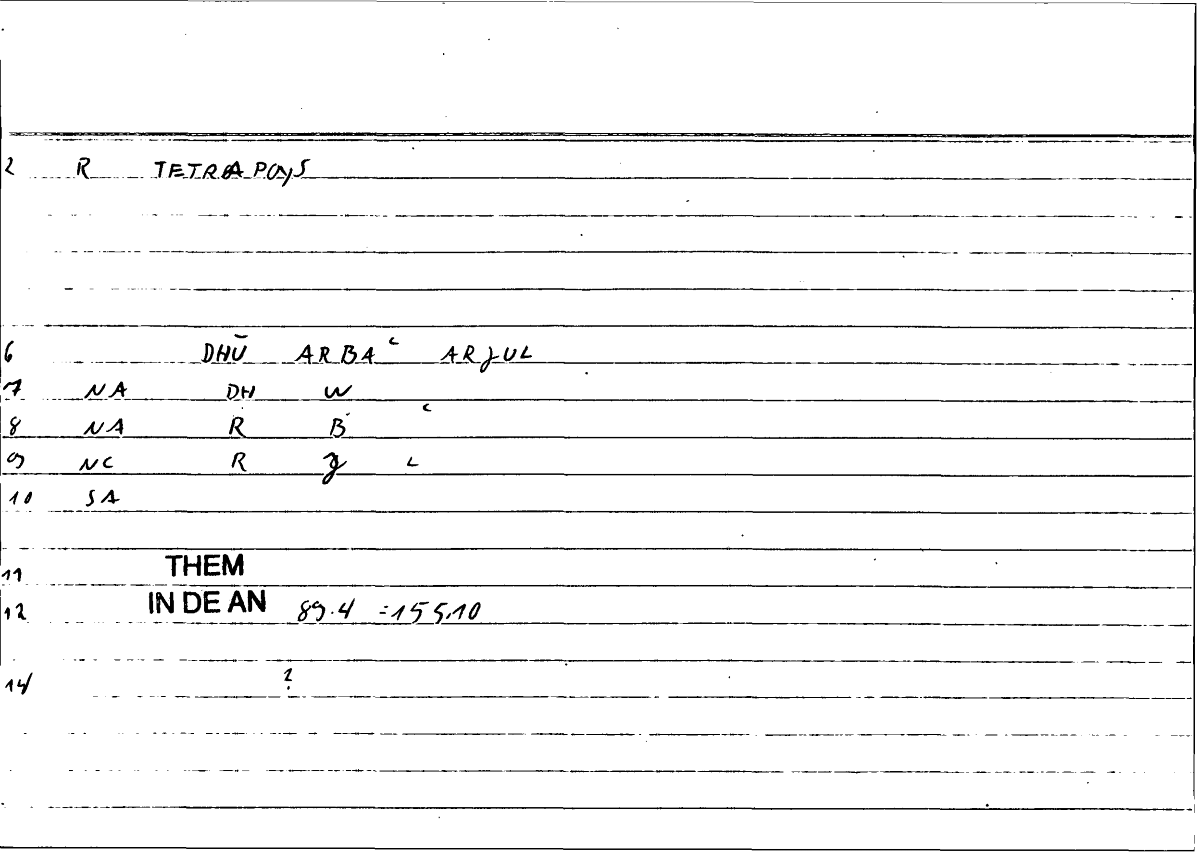 2 R TETRAPOyS
6 DHŪ ARBAᶜ ARJUL
7 NA DH W
8 NA R B ᶜ
9 NC R J L
10 SA
11 THEM
12 IN DE AN 89.4 =155.10
14 ?